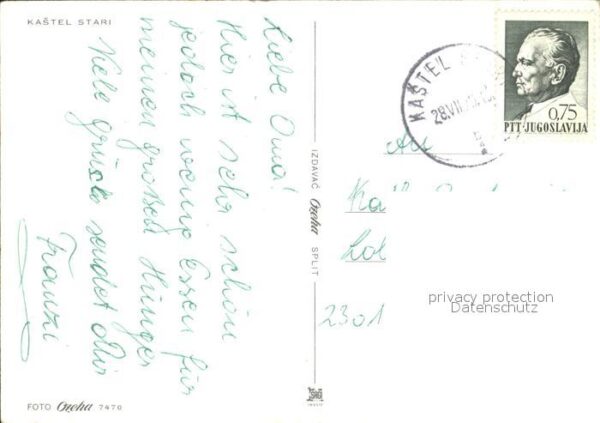 KAŠTEL STARI
Liebe Oma!
Hier ist sehr schön
jedoch wenig Essen für
meinen großen Hunger
Viele Grüße sendet Dir
Franzi
FOTO Ozeha 7470
IZDAVAČ Ozeha SPLIT
KAŠTEL
28.VII
0.75
PTT-JUGOSLAVIJA
An
2301
privacy protection
Datenschutz